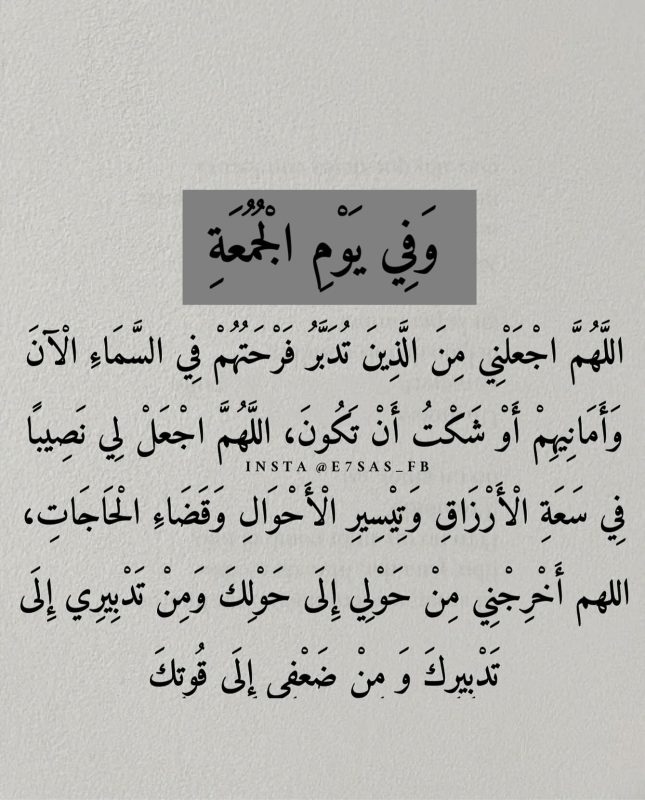 وَفِي يَوْمِ الْجُمُعَةِ
اللَّهُمَّ اجْعَلْنِي مِنَ الَّذِينَ تُدَبَّرُ فَرْحَتُهُمْ فِي السَّمَاءِ الْآنَ
وَأَمَانِيهِمْ أَوْ شَكْتُ أَنْ تَكُونَ، اللَّهُمَّ اجْعَلْ لِي نَصِيبًا
INSTA @E7SAS_FB
فِي سَعَةِ الْأَرْزَاقِ وَتِيْسِيرِ الْأَحْوَالِ وَقَضَاءِ الْحَاجَاتِ،
اللهم أَخْرِجْنِي مِنْ حَوْلِي إِلَى حَوْلِكَ وَمِنْ تَدْبِيرِي إِلَى
تَدْبِيرِكَ وَ مِنْ ضَعْفِي إِلَى قُوتِكَ